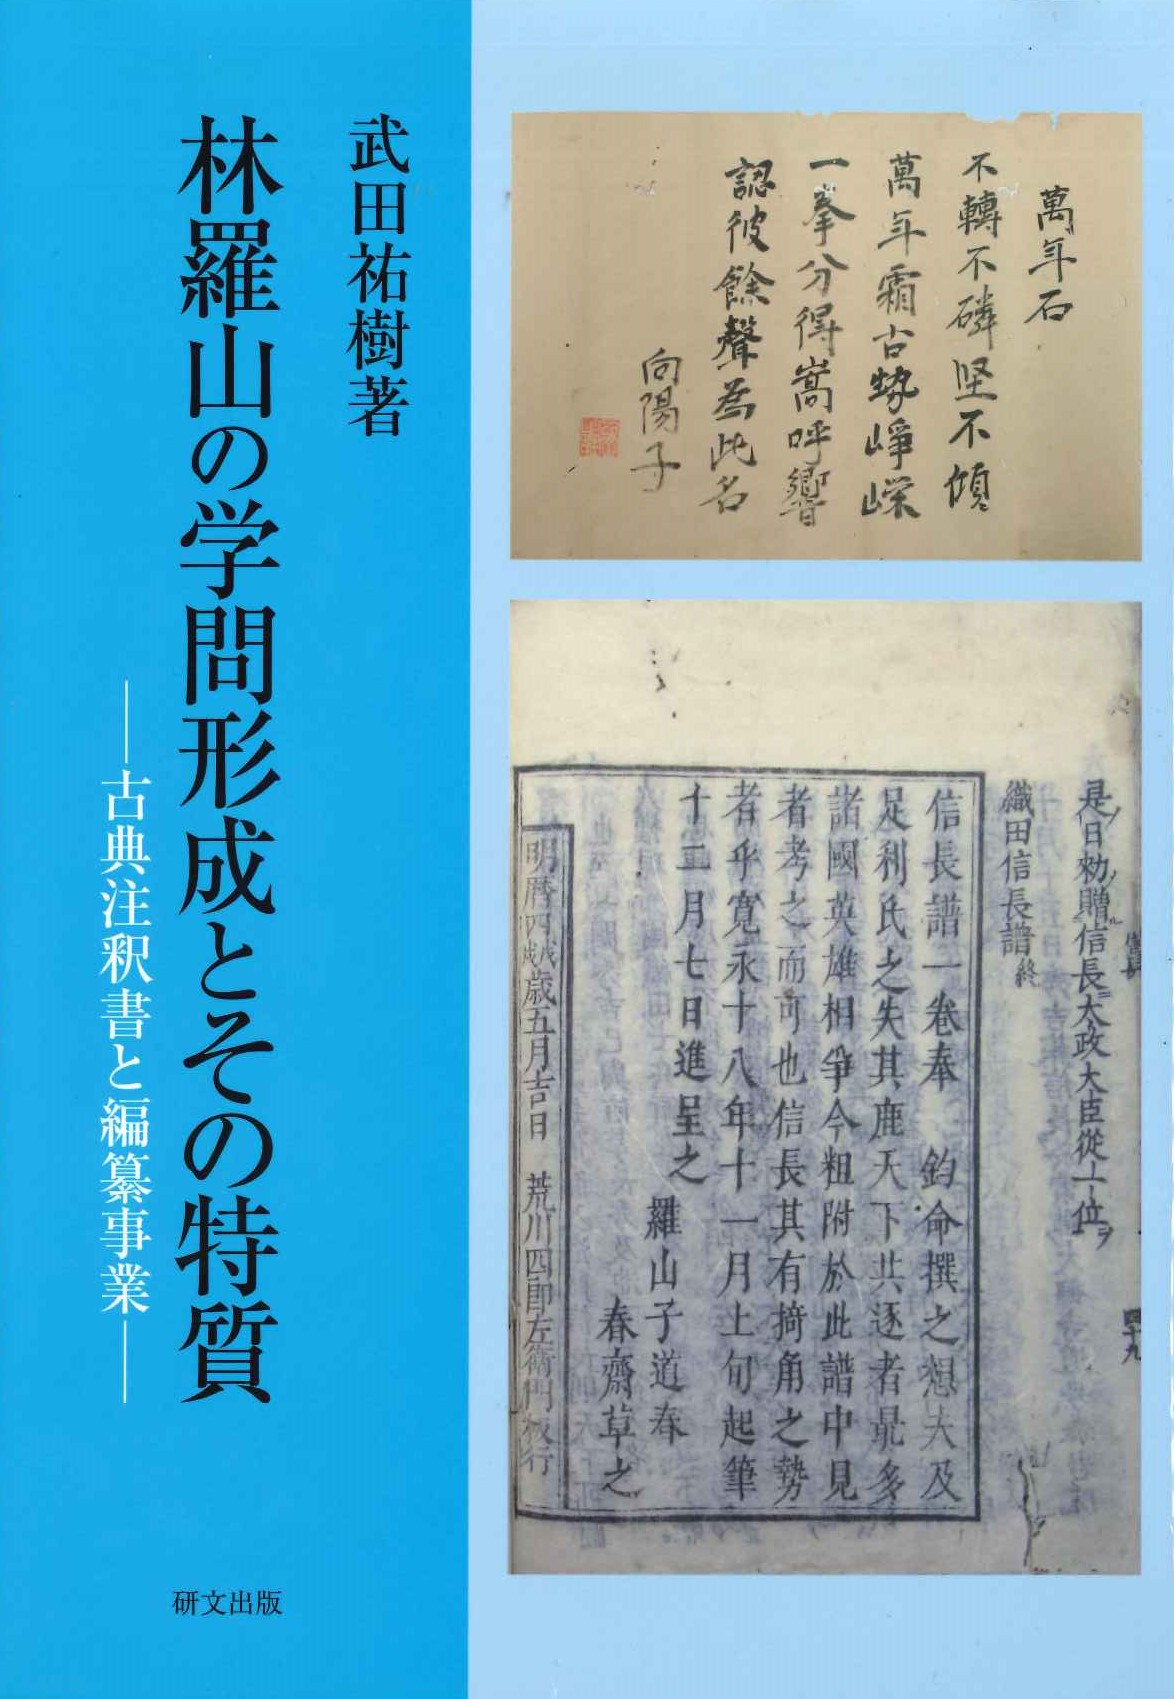 武田祐樹著
林羅山の学問形成とその特質
――古典注釈書と編纂事業――
研文出版
萬年石
不轉不磷堅不傾
萬年霜古勢崢嶸
一拳分得嵩呼響
認彼餘聲為此名
向陽子
是日勅贈信長太政大臣從一位
織田信長譜終
四十九
信長譜一卷奉 鈞命撰之想夫及
足利氏之失其鹿天下共逐者最多
諸國英雄相爭今粗附於此譜中見
者考之而可也信長其有掎角之勢
者乎寛永十八年十一月上旬起筆
十二月七日進呈之
羅山子道春
春齋草之
明曆四戊戌歲五月吉日 荒川四郎左衛門板行